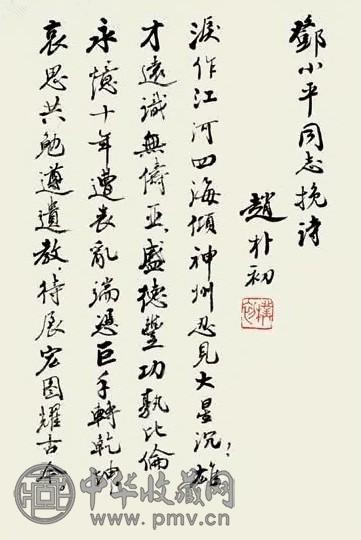 鄧小平同志挽詩
趙朴初
樸初
淚作江河四海傾神州忍見大星沉？雄
才遠識無儔亞，盛德豐功孰比倫
永憶十年遭喪亂端憑巨手轉乾坤，
哀思共勉遵遺教，待展宏图耀古今。
中华收藏网
www.pmv.cn